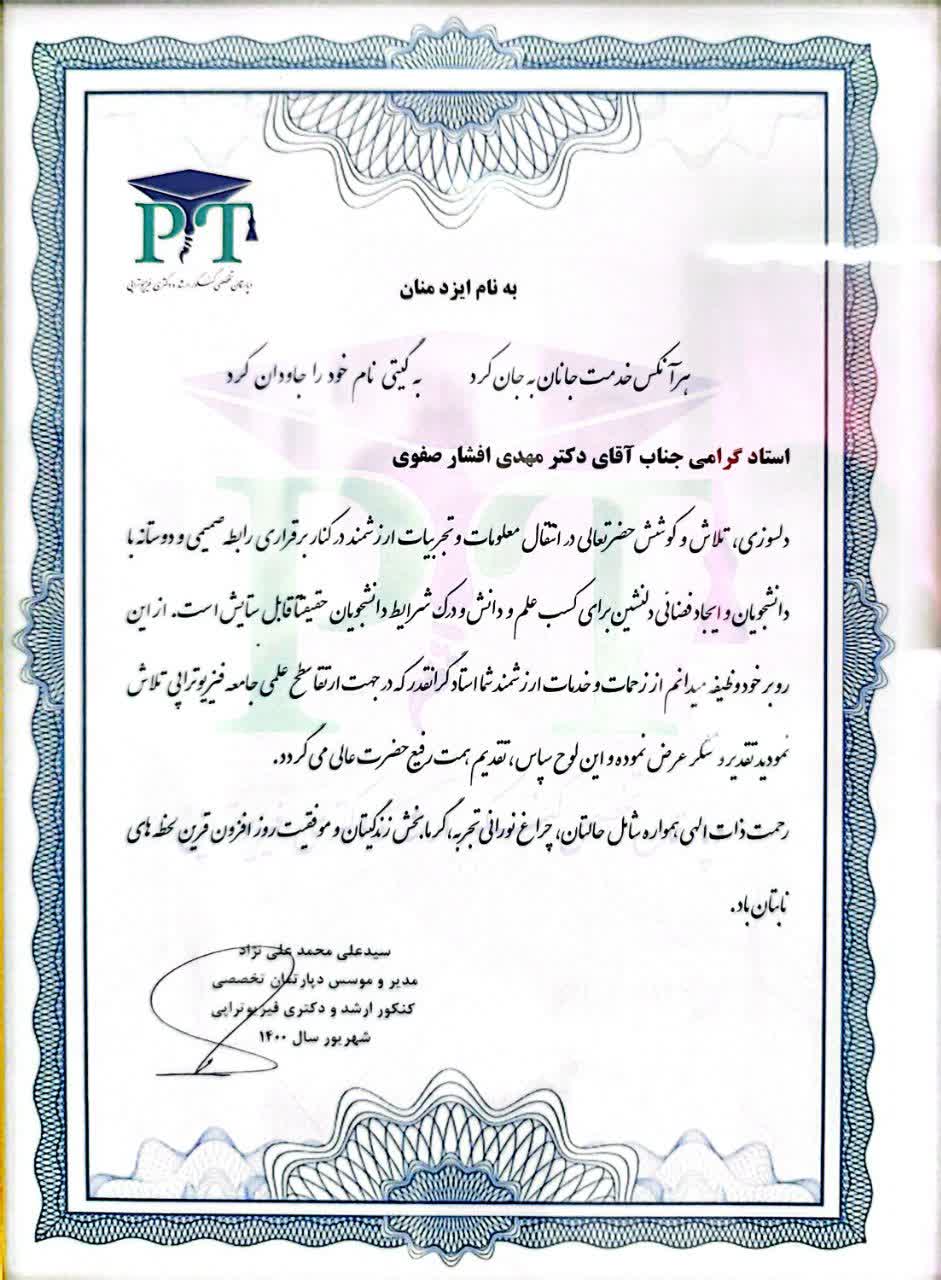 PT
دپارتمان تخصصی کنکور ارشد و دکتری فیزیوتراپی
به نام ایزد منان
هرآنکس خدمت جانان به جان کرد به گیتی نام خود را جاودان کرد
استاد گرامی جناب آقای دکتر مهدی افشار صفوی
دلسوزی، تلاش و کوشش حضرتعالی در انتقال معلومات و تجربیات ارزشمند در کنار برقراری رابطه صمیمی و دوستانه با
دانشجویان و ایجاد فضائی دلنشین برای کسب علم و دانش و درک شرایط دانشجویان حقیقتاً قابل ستایش است. از این
رو بر خود وظیفه میدانم از زحمات و خدمات ارزشمند شما استاد گرانقدر که در جهت ارتقا سطح علمی جامعه فیزیوتراپی تلاش
نمودید تقدیر و تشکر عرض نموده و این لوح سپاس، تقدیم همت رفیع حضرت عالی می گردد.
رحمت ذات الهی همواره شامل حالتان، چراغ نورانی تجربه، گرمابخش زندگیتان و موفقیت روز افزون قرین لحظه های
نابتان باد.
سیدعلی محمد علی نژاد
مدیر و موسس دپارتمان تخصصی
کنکور ارشد و دکتری فیزیوتراپی
شهریور سال ۱۴۰۰